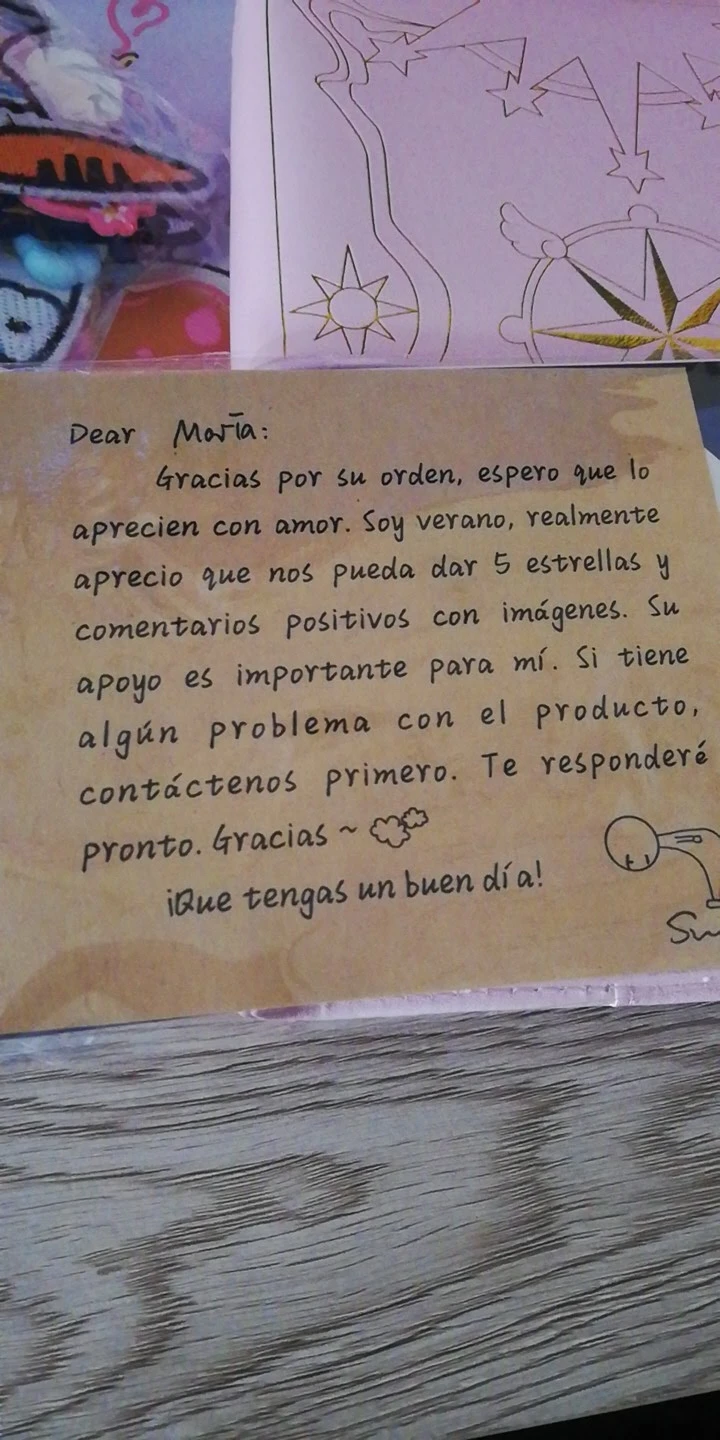 Dear María:
Gracias por su orden, espero que lo
aprecien con amor. Soy verano, realmente
aprecio que nos pueda dar 5 estrellas y
comentarios positivos con imágenes. Su
apoyo es importante para mí. Si tiene
algún problema con el producto,
contáctenos primero. Te responderé
pronto. Gracias ~
¡Que tengas un buen día!